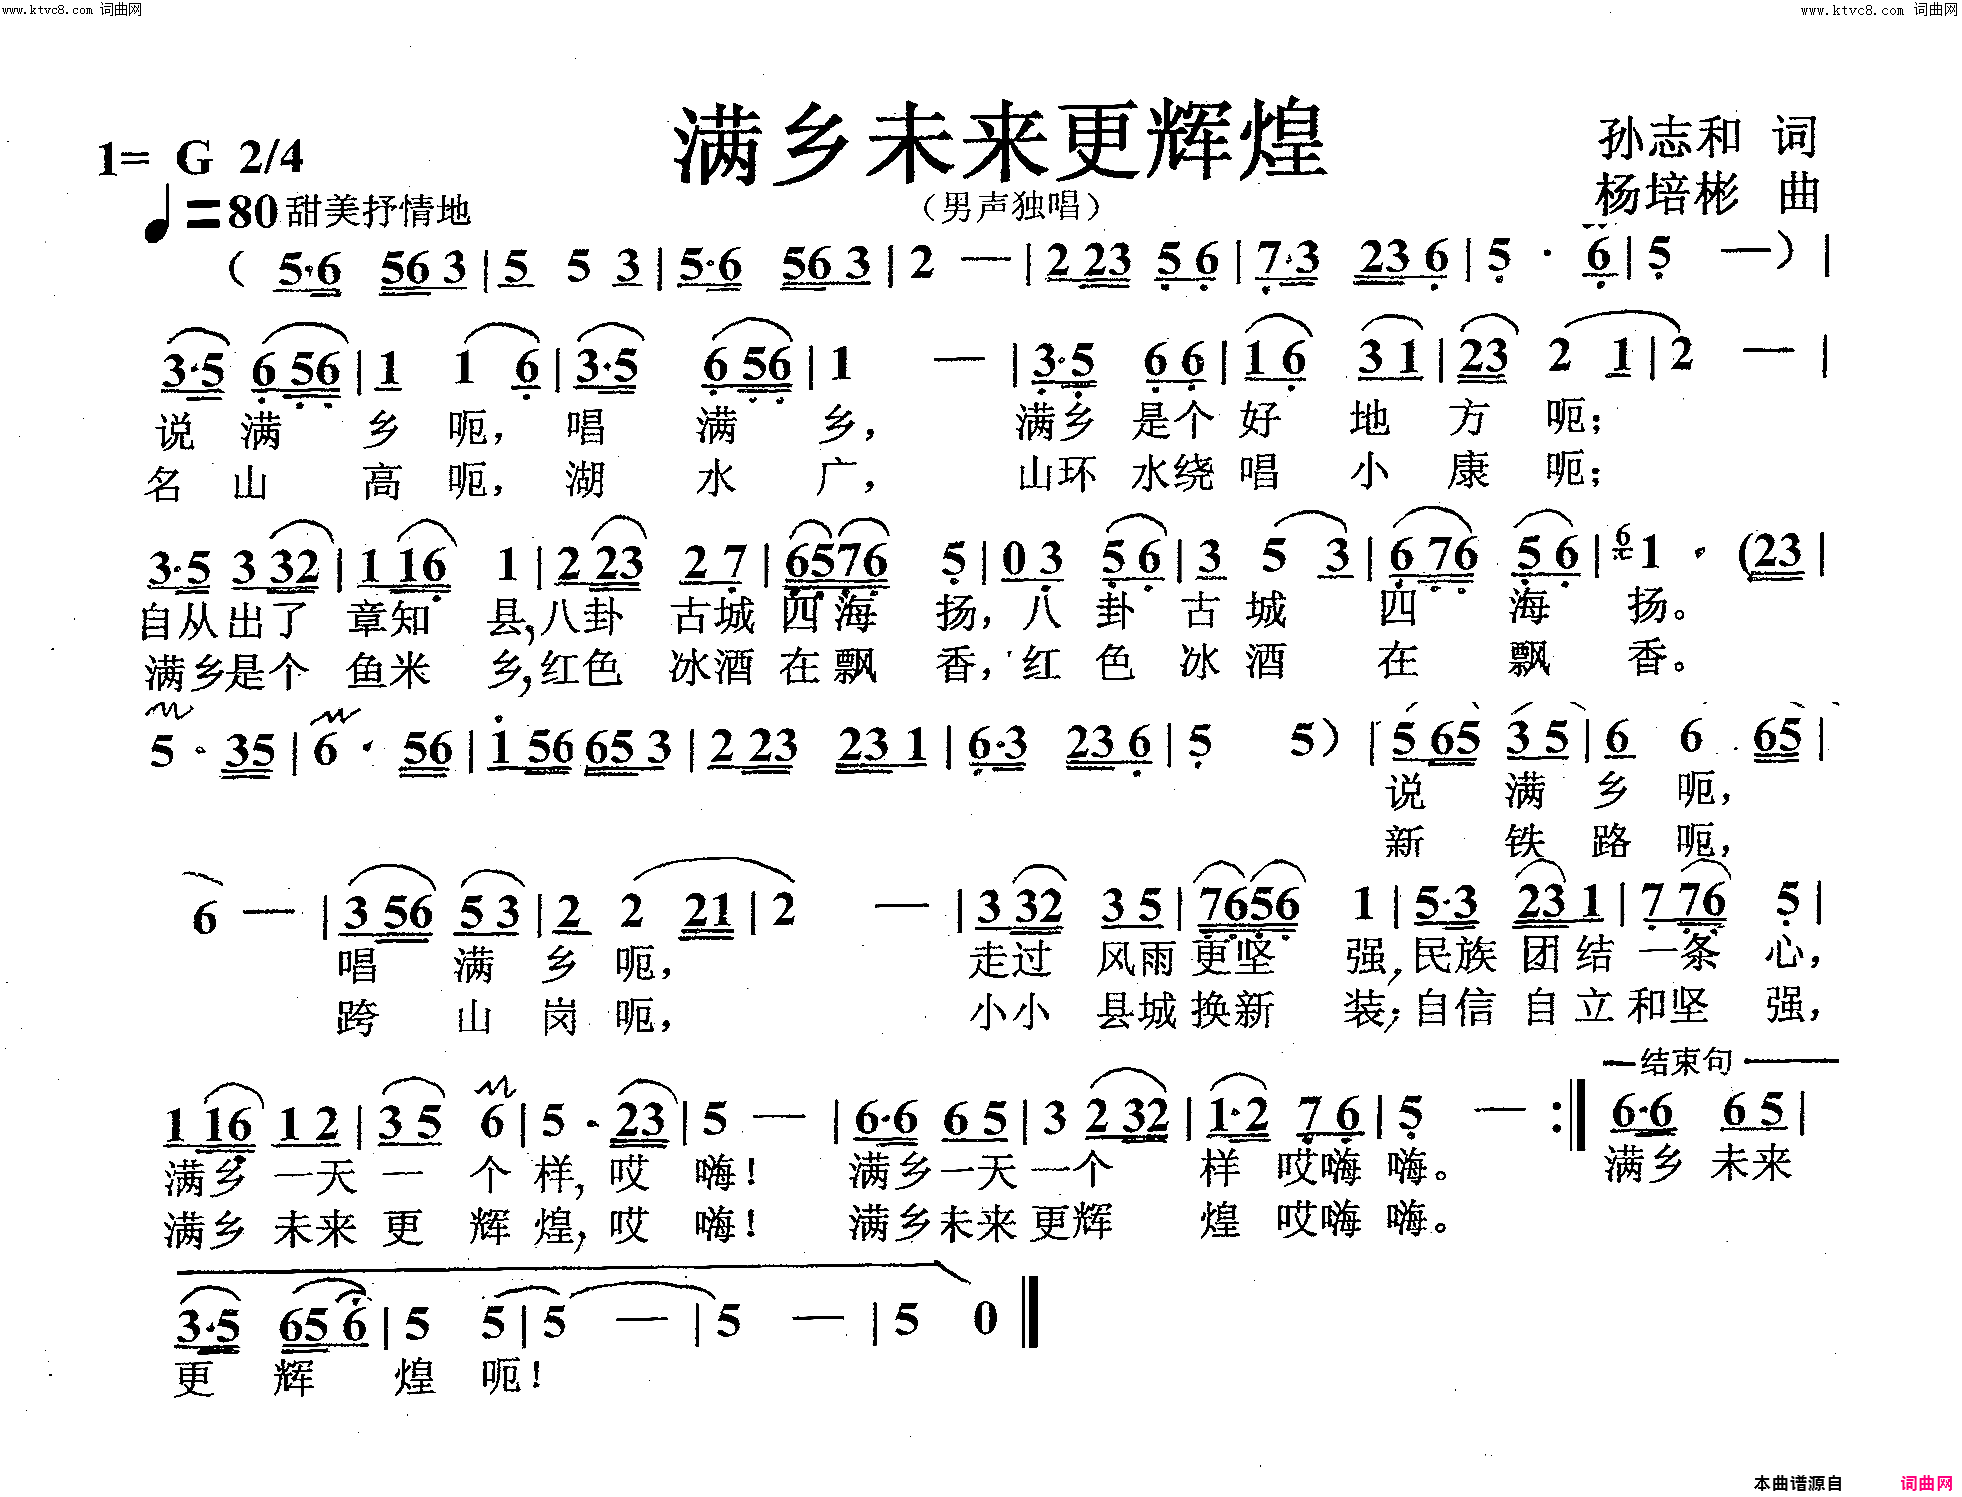 www.ktvc8.com 词曲网 www.ktvc8.com 词曲网
满乡未来更辉煌
1= G 2/4 孙志和 词
♩=80 甜美抒情地 （男声独唱） 杨培彬 曲
（ 5·6 56 3 | 5 5 3 | 5·6 56 3 | 2 — | 2 23 5 6 | 7·3 23 6 | 5 · 6 | 5 — ）|
3·5 6 56 | 1 1 6 | 3·5 6 56 | 1 — | 3·5 6 6 | 1 6 3 1 | 23 2 1 | 2 — |
说 满 乡 呃， 唱 满 乡， 满乡 是个 好 地 方 呃；
名 山 高 呃， 湖 水 广， 山环 水绕 唱 小 康 呃；
3·5 3 32 | 1 16 1 | 2 23 2 7 | 6576 5 | 0 3 5 6 | 3 5 3 | 6 76 5 6 | 6 1 · (23 |
自从出了 章知 县,八卦 古城四海 扬，八 卦 古 城 四 海 扬。
满乡是个 鱼米 乡,红色 冰酒在飘 香，红 色 冰 酒 在 飘 香。
5 · 35 | 6 · 56 | 1 56 65 3 | 2 23 23 1 | 6·3 23 6 | 5 5 ）| 5 65 3 5 | 6 6 65 |
说 满 乡 呃，
新 铁 路 呃，
6 — | 3 56 5 3 | 2 2 21 | 2 — | 3 32 3 5 | 7656 1 | 5·3 23 1 | 7 76 5 |
唱 满 乡 呃， 走过 风雨更坚 强,民族 团结 一条 心，
跨 山 岗 呃， 小小 县城换新 装;自信 自立和坚 强，
结束句
1 16 1 2 | 3 5 6 | 5 · 23 | 5 — | 6·6 6 5 | 3 2 32 | 1·2 7 6 | 5 — :‖ 6·6 6 5 |
满乡 一天 一 个 样, 哎 嗨！ 满乡一天一个 样 哎嗨 嗨。 满乡 未来
满乡 未来 更 辉 煌, 哎 嗨！ 满乡未来更辉 煌 哎嗨 嗨。
3·5 65 6 | 5 5 | 5 — | 5 — | 5 0 ‖
更 辉 煌 呃！
本曲谱源自 词曲网